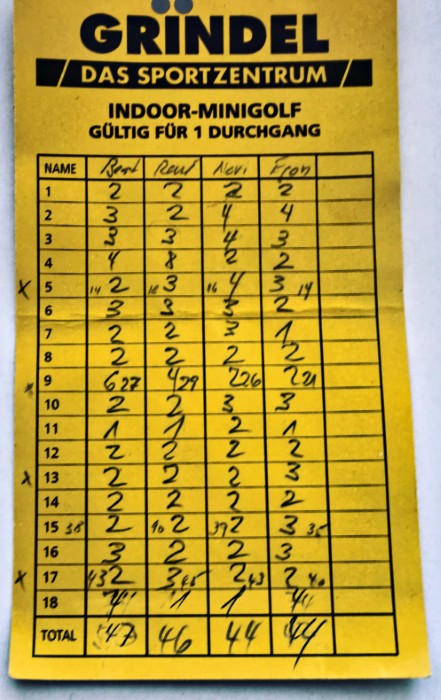 GRINDEL
DAS SPORTZENTRUM
INDOOR-MINIGOLF
GÜLTIG FÜR 1 DURCHGANG
NAME Beat Navi Fron
1 2 2 2 2
2 3 2 4 4
3 3 3 4 3
4 4 8 2 2
x 5 14 2 18 3 16 4 3 14
6 3 3 3 2
7 2 2 3 1
8 2 2 2 2
x 9 6 27 4 29 2 26 2 21
10 2 2 3 3
11 1 1 2 1
12 2 2 2 2
x 13 2 2 2 3
14 2 2 2 2
15 38 2 40 2 39 2 3 35
16 3 2 2 3
x 17 43 2 3 45 2 43 2 40
18 4 1 1 4
TOTAL 47 46 44 44